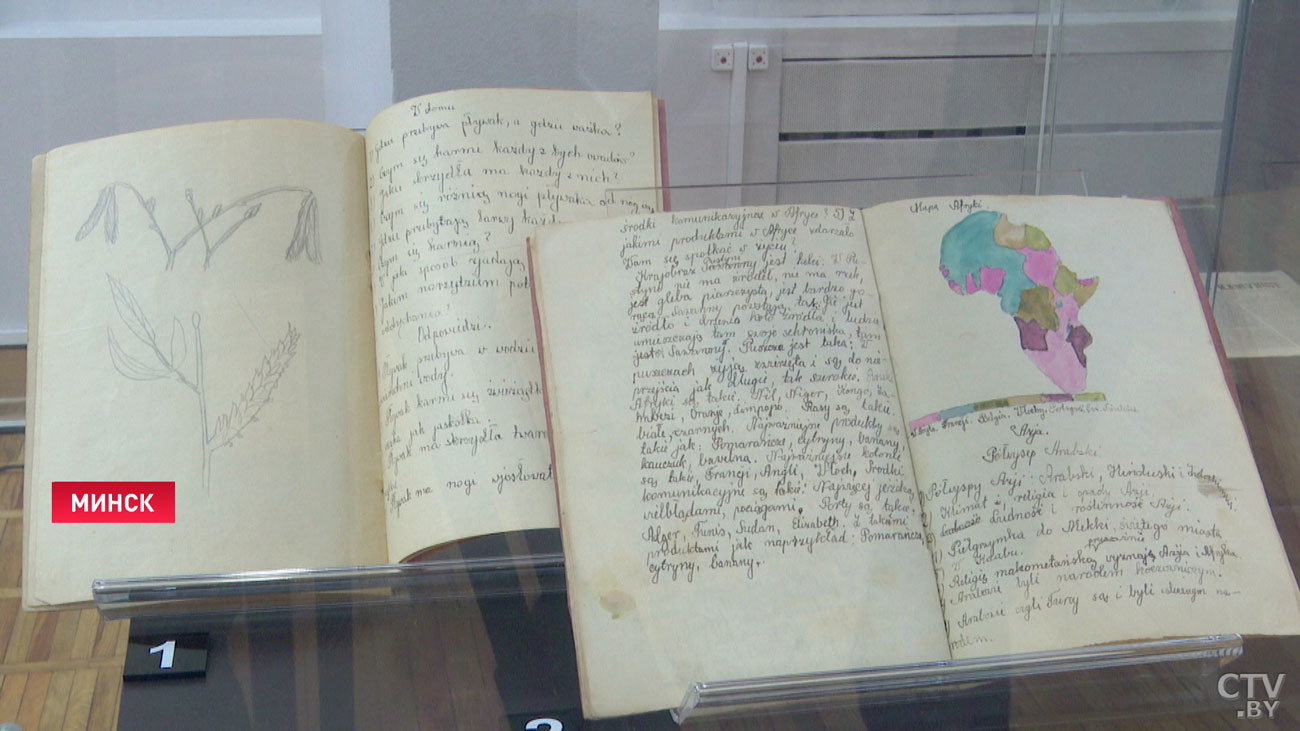 W domu
przebywa pływak, a gdzie ważka?
Czym się karmi każdy z tych owadów?
Jakie skrzydła ma każdy z nich?
Czym się różnią nogi pływaka od nóg
Gdzie przebywają larwy każdego
Czym się karmią?
W jaki sposób zjadają
Jakim narządem
oddychania?
Odpowiedzi.
Pływak przebywa w wodzie
wody.
Pływak karmi się
jak jaskółka.
Pływak ma skrzydła tward
Pływak ma nogi wiosłowat
środki komunikacyjne w Afryce? 7) Z
jakimi produktami w Afryce zdarzało
Wam się spotkać w życiu?
Krajobraz pustyni jest taki: W Pu-
styni nie ma źródeł, nie ma rzek,
jest gleba piaszczysta, jest bardzo go-
rąca. Sawanny pozostają, tak gdzie jest
źródło i drzewa koło źródła i ludzie
umieszczają tam swoje schroniska, tam
jest Sawanną. Puszcza jest taka: W
puszczach żyją zwierzęta i są do nie-
przejścia jak długie, tak szerokie. Rzeki
Afryki są takie: Nil, Niger, Kongo, Za-
mbezi, Oranje, Limpopo. Rasy są takie
białe, czarnych. Najważniejsze produkty są
takie jak: Pomarańcze, cytryny, banany
kauczuk, bawełna. Najważniejsze kolonie
są takie, Francji, Angli, Włoch, Środki
komunikacyjne są takie: Najwięcej jeżdżą
wielbłądami, pociągami. Porty są takie:
Alger, Tunis, Sudan, Elizabeth, Z takimi
produktami jak naprzykład: Pomarańcze,
cytryny, banany.
Mapa Afryki.
Anglja, Francji, Belgja, Włochy, Portugal,
Azja.
Półwysep Arabski
Półwyspy Azji: Arabski, Hinduski i
Klimat, religia i rasy Azji.
ludność i roślinność Azji.
Pielgrzymka do Mekki, świętego miasta
Religię mahometańską wyznają Azja i Afryka.
Arabowie byli narodem koczowniczym.
Arabowie czyli Turcy są i byli walecznym na-
rodem.
МИНСК
1
2
CTV
.BY